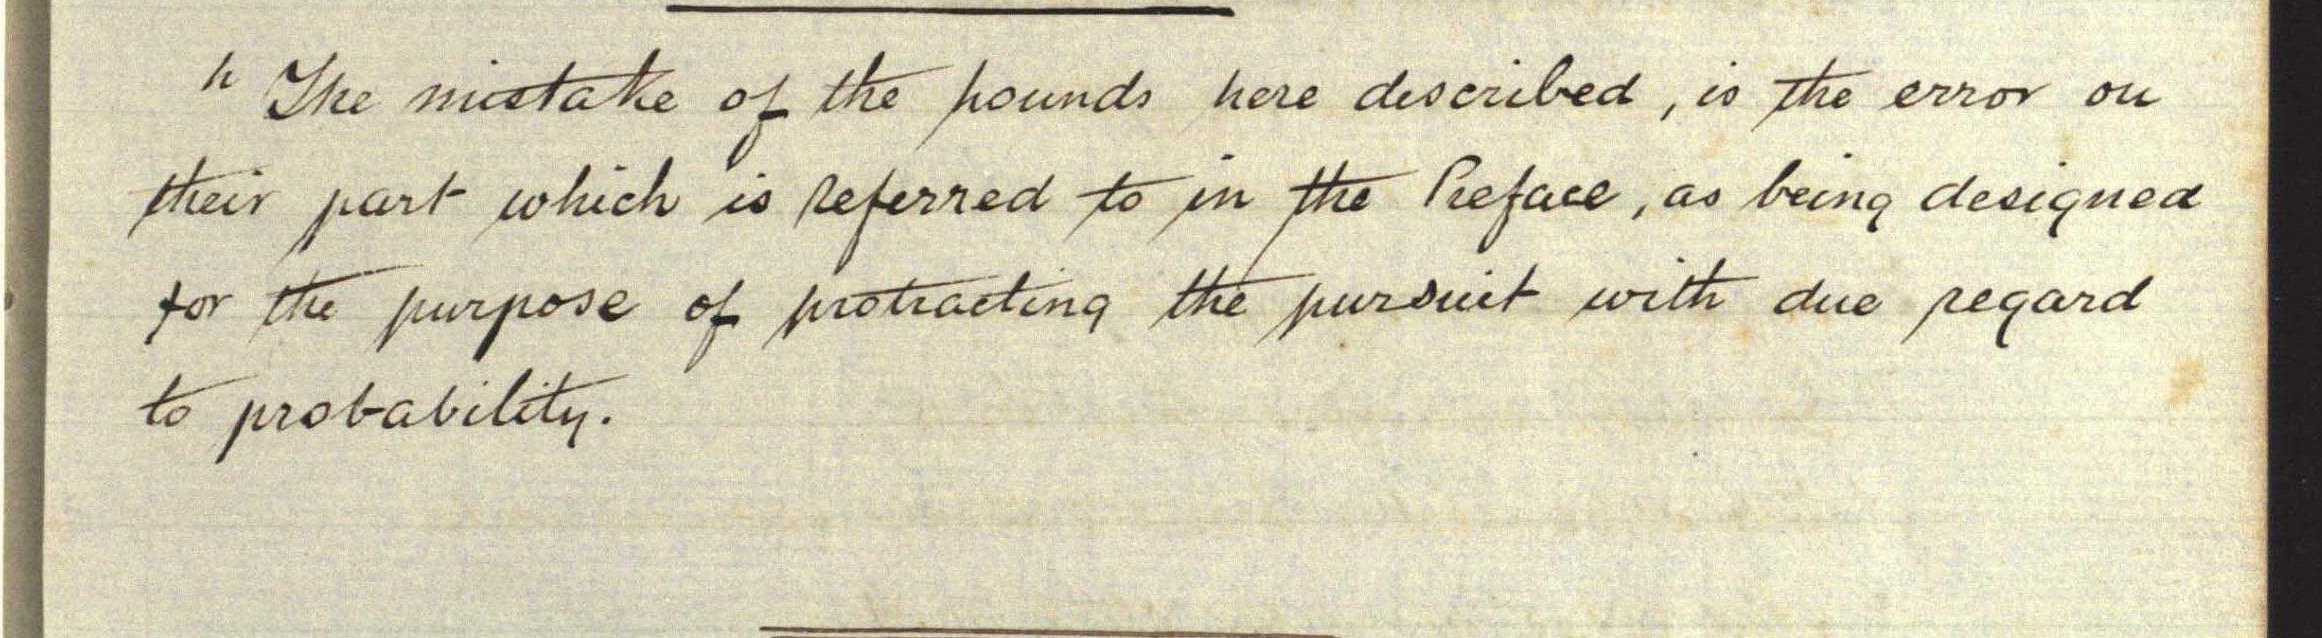 h The mistake of the hounds here described, is the error on
their part which is referred to in the Preface, as being designed
for the purpose of protracting the pursuit with due regard
to probability.